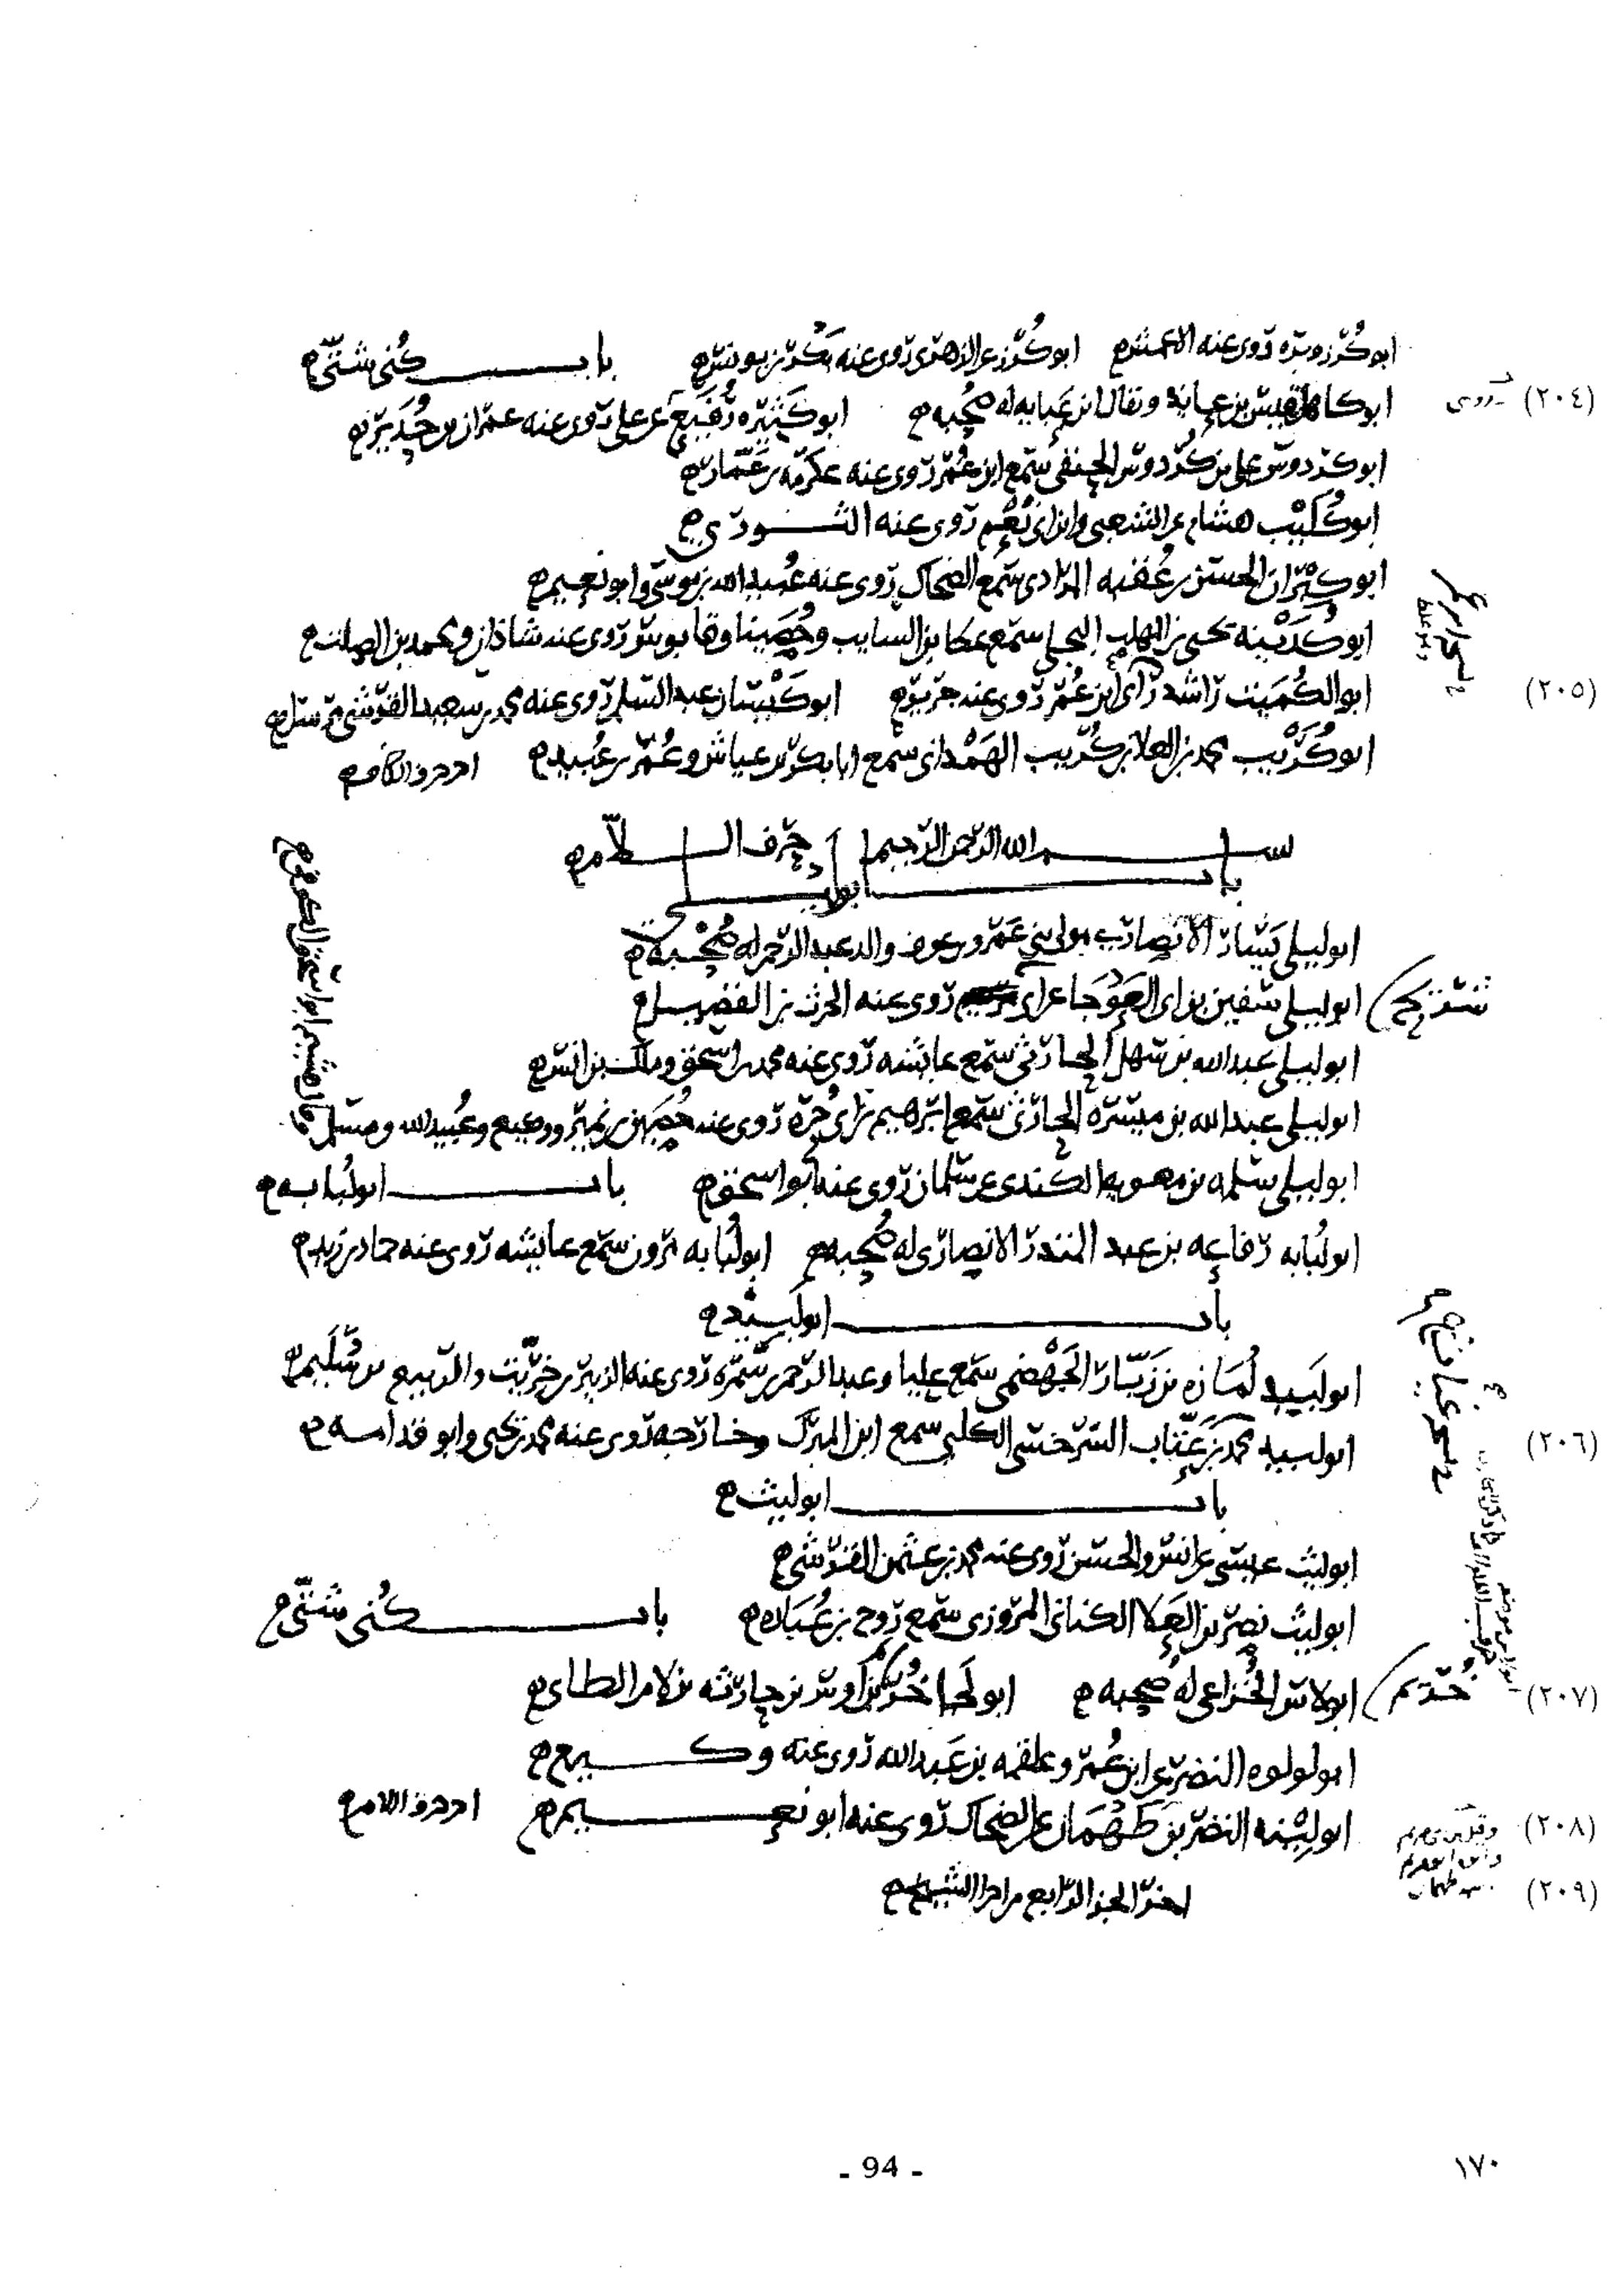 ابو كرز وبره روى عنه الاعمش ابو كرز عن الزهرى روى عنه بكر بن يونس باب كنى شتى
ابو كاهل قيس بن عايذ ويقال ابن عبايه له صحبه ابو كثيره رفيع عن على روى عنه عمران بن حدير
ابو كردوس على بن كردوس الحنفى سمع ابن عمر روى عنه عكرمه بن عمار
ابو كليب هشام عن الشعبى وابن ابى نعم روى عنه الثورى
ابو كبران الحسن بن عقبه المرادى سمع الضحاك روى عنه عبيد الله بن موسى وابو نعيم
ابو كدينه يحيى بن المهلب البجلى سمع عطا بن السايب وحصينا وقابوس روى عنه شاذان ومحمد بن الصلت
ابو الكميت راشد راى ابن عمر روى عنه جرير ابو كبشان عبد السلم روى عنه محمد بن سعيد القرشى مرسل
ابو كريب محمد بن العلا بن كريب الهمدانى سمع ابا بكر بن عياش وعمر بن عبيد اخر حرف الكاف
بسم الله الرحمن الرحيم حرف اللام
باب ابو ليلى
ابو ليلى يسار الانصارى مولى بنى عمرو بن عوف والد عبد الرحمن له صحبه
ابو ليلى سفين بن ابى العوجا عن ابى شريح روى عنه الحرث بن الفضيل
ابو ليلى عبد الله بن سهل الحارثى سمع عايشه روى عنه محمد بن اسحق وملك بن انس
ابو ليلى عبد الله بن ميسره الحارثى سمع ابرهيم بن ابى حره روى عنه حصين بن نمير ووكيع وعبيد الله ومسلم
قال هشيم ابو اسحق الكوفى
ابو ليلى سلمه بن معويه الكندى عن سلمان روى عنه ابو اسحق باب ابو لبابه
ابو لبابه رفاعه بن عبد المنذر الانصارى له صحبه ابو لبابه مرون سمع عايشه روى عنه حماد بن زيد
باب ابو لبيد
ابو لبيد لمازه بن زبار الجهضمى سمع عليا وعبد الرحمن بن سمره روى عنه الزبير بن خريت والربيع بن سليم
ابو لبيد محمد بن عتاب السرخسى الكلبى سمع ابن المبرك وخارجه روى عنه محمد بن يحيى وابو قدامه
باب ابو ليث
ابو ليث عيسى عن انس والحسن روى عنه محمد بن عثمن القرشى
ابو ليث نصر بن العلا الكنانى المروزى سمع روح بن عباده باب كنى شتى
خريم ابو لاس الخزاعى له صحبه ابو لحا خريم بن اوس بن حارثه بن لام الطاى
ابو لولوه النضر عن ابن عمر وعلقمه بن عبد الله روى عنه وكيع
ابو لينه النضر بن طهمان عن الضحاك روى عنه ابو نعيم اخر حرف اللام
اخر الجز الرابع من اجزا الشيخ
(٢٠٤)
(٢٠٥)
(٢٠٦)
(٢٠٧)
(٢٠٨)
(٢٠٩)
- 94 -
١٧٠